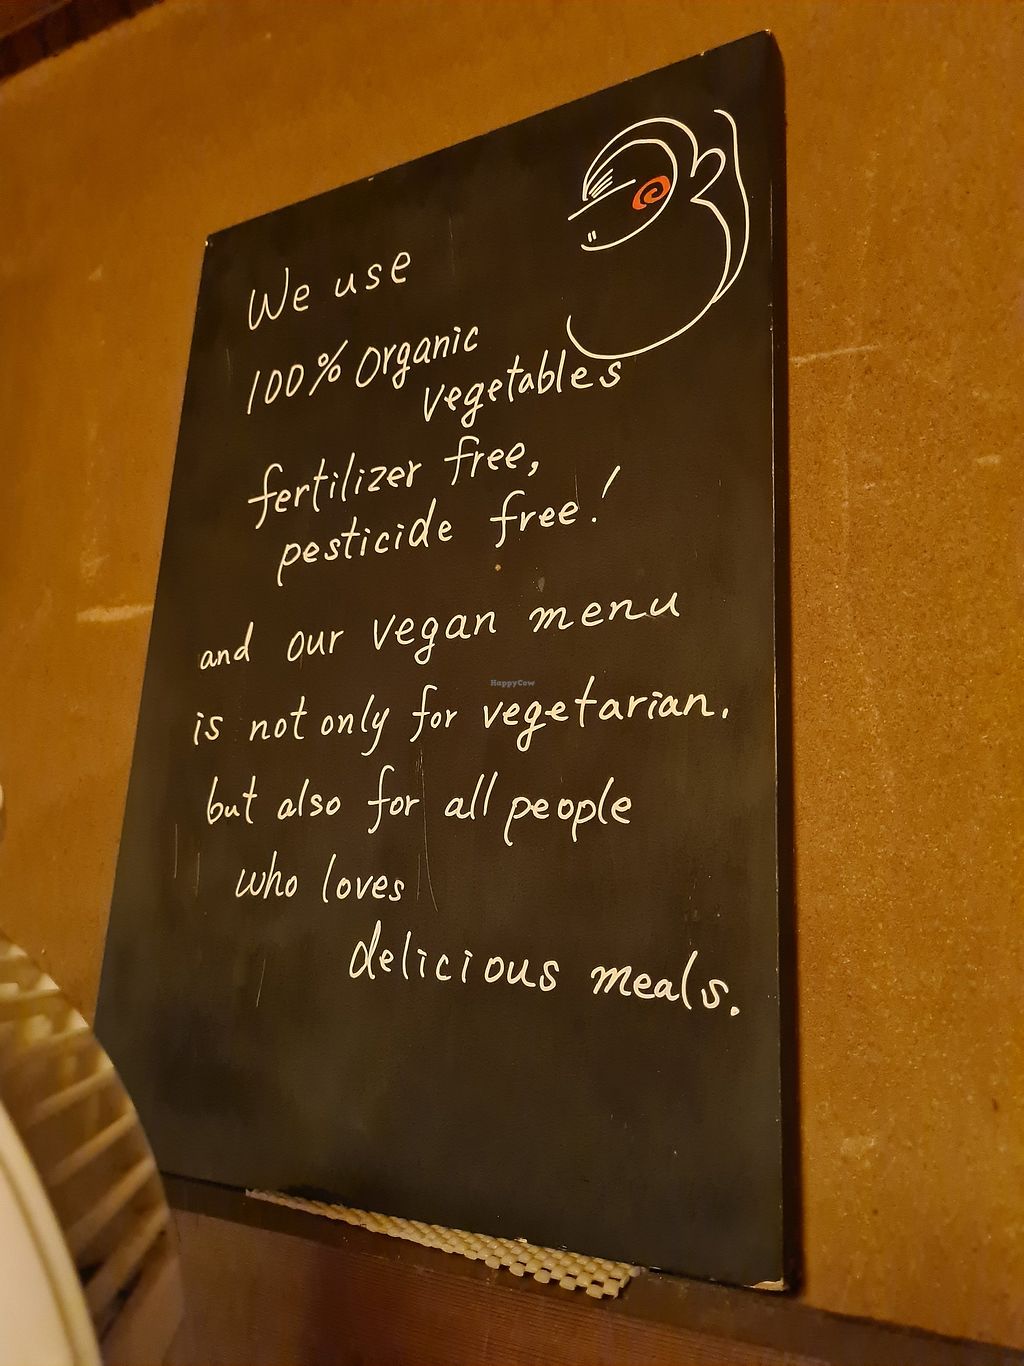 We use
100% Organic
vegetables
fertilizer free,
pesticide free!
and our vegan menu
HappyCow
is not only for vegetarian.
but also for all people
who loves
delicious meals.